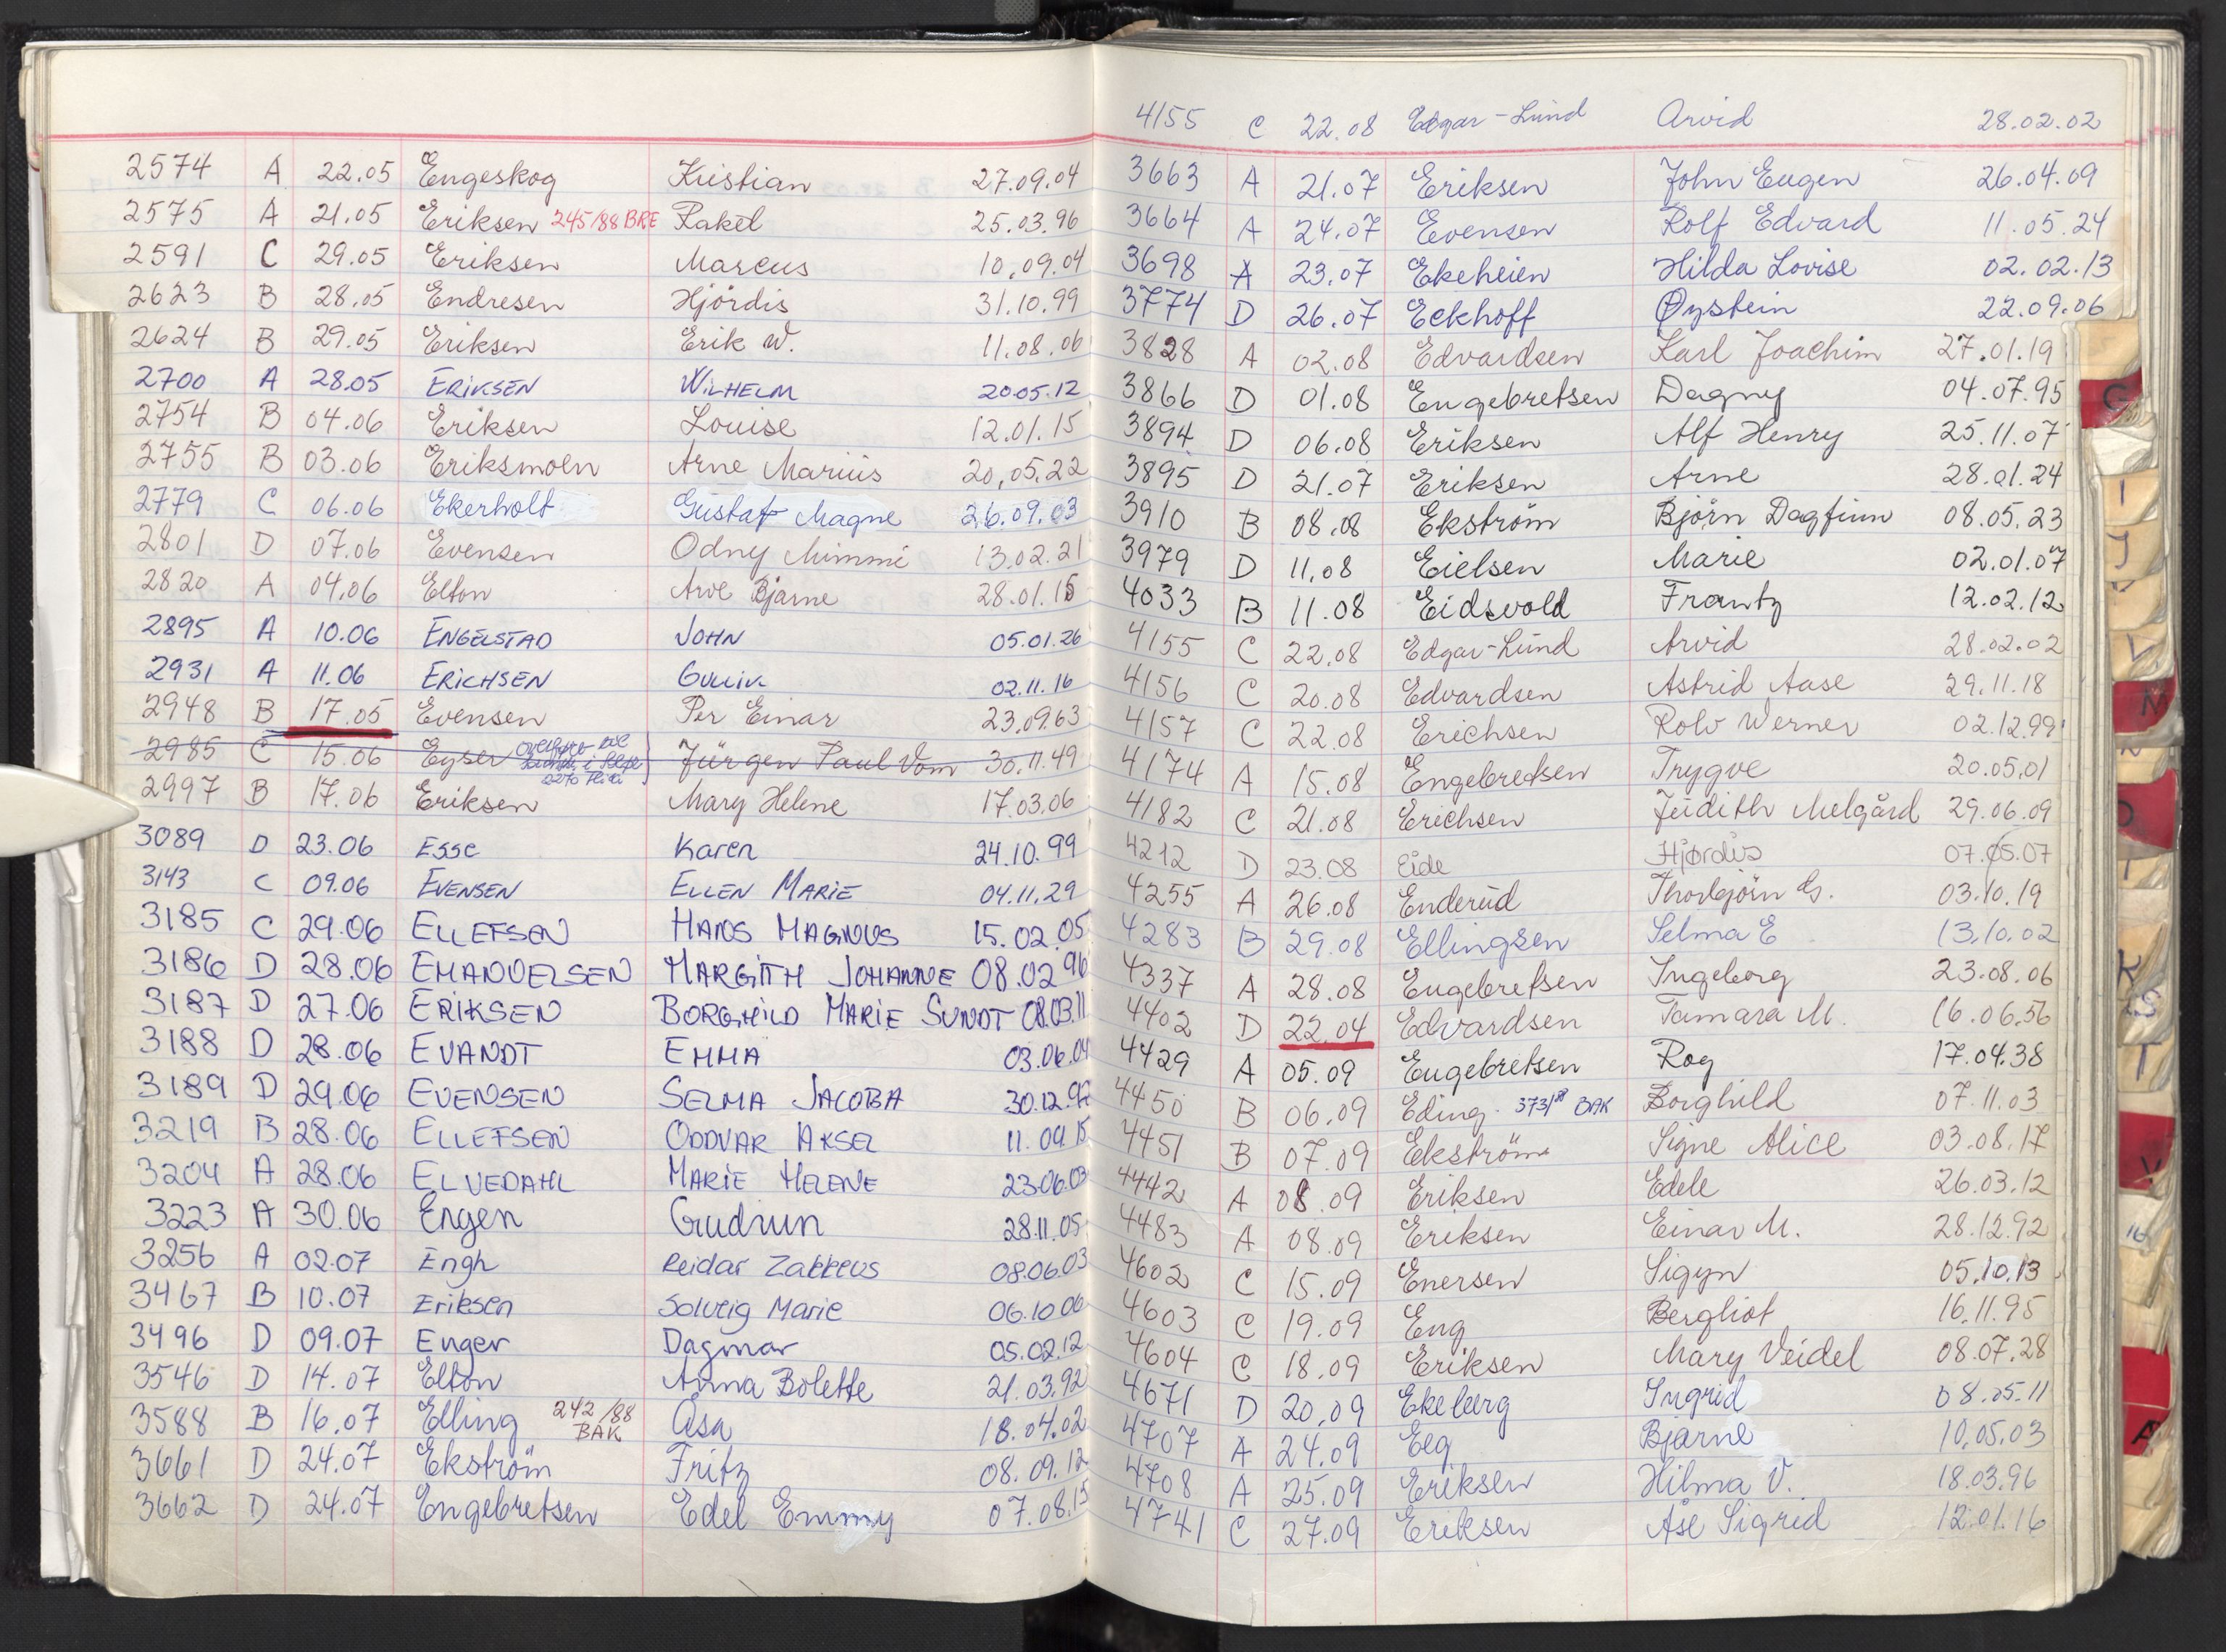 2574 A 22.05 Engeskog Kristian 27.09.04
2575 A 21.05 Eriksen 245/88 BRE Rakel 25.03.96
2591 C 29.05 Eriksen Marcus 10.09.04
2623 B 28.05 Endresen Hjördis 31.10.99
2624 B 29.05 Eriksen Erik W. 11.08.06
2700 A 28.05 ERIKSEN WILHELM 20.05.12
2754 B 04.06 Eriksen Louise 12.01.15
2755 B 03.06 Eriksmoen Arne Marius 20.05.22
2779 C 06.06 Ekerholt Gustaf Magne 26.09.03
2801 D 07.06 Evensen Odny Mimmi 13.02.21
2820 A 04.06 Elton Arve Bjarne 28.01.15
2895 A 10.06 ENGELSTAD JOHN 05.01.26
2931 A 11.06 ERICHSEN 02.11.16
2948 B 17.05 Evensen Per Einar 23.09.63
2985 C 15.06 Eyser Jürgen Paul Vom 30.11.49
2997 B 17.06 Eriksen Mary Helene 17.03.06
3089 D 23.06 Esse Karen 24.10.99
3143 C 09.06 EVENSEN ELLEN MARIE 04.11.29
3185 C 29.06 ELLEFSEN HANS MAGNUS 15.02.05
3186 D 28.06 EMANUELSEN MARGITH JOHANNE 08.02.96
3187 D 27.06 ERIKSEN BORGHILD MARIE SUNDT 08.03.11
3188 D 28.06 EVANDT EMMA 03.06.04
3189 D 29.06 EVENSEN SELMA JACOBA 30.12.
3219 B 28.06 ELLEFSEN ODDVAR AKSEL 11.09.15
3204 A 28.06 ELVEDAHL MARIE HELENE 23.06.03
3223 A 30.06 Engen Gudrun 28.11.05
3256 A 02.07 Engh Reidar Zakkeus 08.06.03
3467 B 10.07 Eriksen Solveig Marie 06.10.06
3496 D 09.07 Enger Dagmar 05.02.12
3546 D 14.07 Elton Anna Bolette 21.03.92
3588 B 16.07 Elling 242/88 BAK Åsa 18.04.02
3661 D 24.07 Ekström Fritz 08.09.12
3662 D 24.07 Engebretsen Edel Emmy 07.08.15
4155 C 22.08 Edgar-Lund Arvid 28.02.02
3663 A 21.07 Eriksen John Eugen 26.04.09
3664 A 24.07 Evensen Rolf Edvard 11.05.24
3698 A 23.07 Ekeheien Hilda Lovise 02.02.13
3774 D 26.07 Eckhoff Øystein 22.09.06
3828 A 02.08 Edvardsen Karl Joachim 27.01.19
3866 D 01.08 Engebretsen Dagny 04.07.95
3894 D 06.08 Eriksen Alf Henry 25.11.07
3895 D 21.07 Eriksen Arne 28.01.24
3910 B 08.08 Ekström Björn Dagfinn 08.05.23
3979 D 11.08 Eielsen Marie 02.01.07
4033 B 11.08 Eidsvold Frantz 12.02.12
4155 C 22.08 Edgar-Lund Arvid 28.02.02
4156 C 20.08 Edvardsen Astrid Aase 29.11.18
4157 C 22.08 Erichsen Rolv Werner 02.12.99
4174 A 15.08 Engebretsen Trygve 20.05.01
4182 C 21.08 Erichsen Judith Melgård 29.06.09
4212 D 23.08 Eide Hjørdis 07.05.07
4255 A 26.08 Enderud Thorbjörn G. 03.10.19
4283 B 29.08 Ellingsen Selma E 13.10.02
4337 A 28.08 Engebretsen Ingeborg 23.08.06
4402 D 22.04 Edvardsen Tamara M. 16.06.56
4429 A 05.09 Engebretsen Roy 17.04.38
4450 B 06.09 Eding 373/88 BAK Borghild 07.11.03
4451 B 07.09 Ekström Signe Alice 03.08.17
4442 A 08.09 Eriksen Edele 26.03.12
4483 A 08.09 Eriksen Einar M. 28.12.92
4602 C 15.09 Enersen Sigyn 05.10.13
4603 C 19.09 Eng Bergliot 16.11.95
4604 C 18.09 Eriksen Mary Veidel 08.07.28
4671 D 20.09 Ekeberg Ingrid 08.05.11
4707 A 24.09 Eeg Bjarne 10.05.03
4708 A 25.09 Eriksen Hilma V. 18.03.96
4741 C 27.09 Eriksen Åse Sigrid 12.01.16
G
I
J
V
M
K
S
T